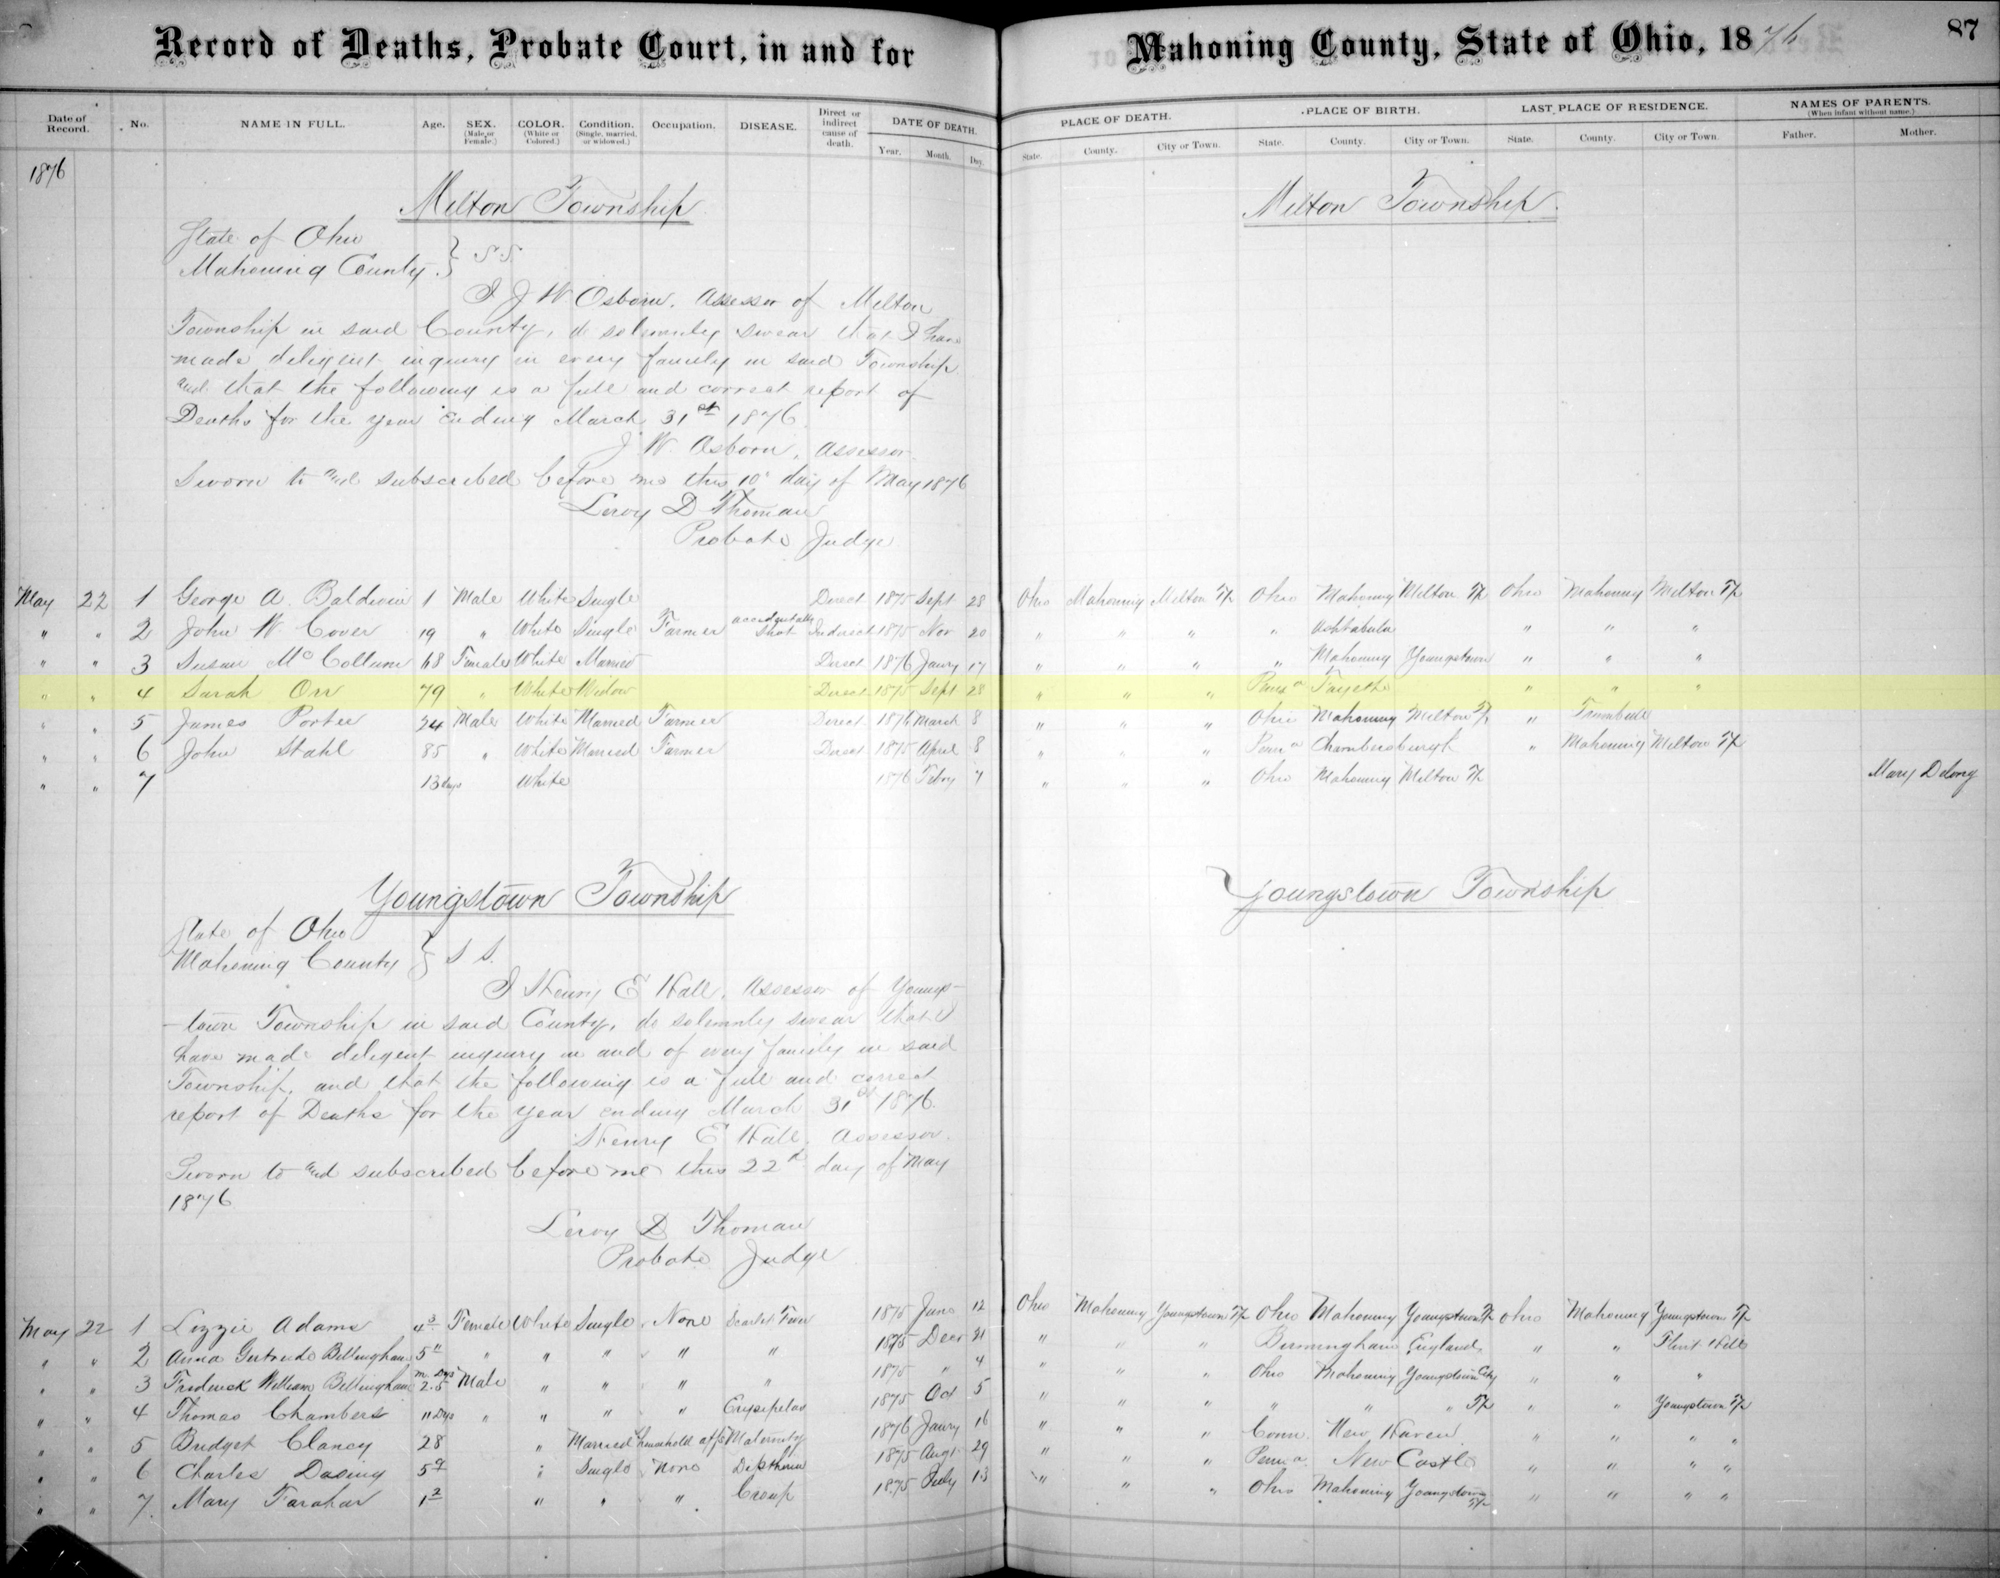 Record of Deaths, Probate Court, in and for Mahoning County, State of Ohio, 1876 87
Date of Record. No. NAME IN FULL. Age. SEX. (Male or Female.) COLOR. (White or Colored.) Condition. (Single, married, or widowed.) Occupation. DISEASE. Direct or indirect cause of death. DATE OF DEATH. Year. Month. Day. PLACE OF DEATH. State. County. City or Town. PLACE OF BIRTH. State. County. City or Town. LAST PLACE OF RESIDENCE. State. County. City or Town. NAMES OF PARENTS. (When infant without name.) Father. Mother.
1876
Milton Township Milton Township.
State of Ohio
Mahoning County } S.S.
I J W Osborn, Assessor of Milton
Township in said County, do solemnly swear that I have
made diligent inquiry in every family in said Township
and that the following is a full and correct report of
Deaths for the year Ending March 31st 1876.
J. W. Osborn, Assessor.
Sworn to and subscribed before me this 10" day of May 1876
Leroy D Thoman
Probate Judge
May 22 1 George A. Baldwin 1 Male White Single Direct 1875 Sept 28 Ohio Mahoning Milton Tp Ohio Mahoning Milton Tp Ohio Mahoning Milton Tp
" " 2 John W. Cover 19 " White Single Farmer accidentally shot Indirect 1875 Nov 20 " " " " Ashtabula " " "
" " 3 Susan McCollum 68 Female White Married Direct 1876 Janry 17 " " " " Mahoning Youngstown " " "
" " 4 Sarah Orr 79 " White Widow Direct 1875 Sept 28 " " " Penna Fayette " " "
" " 5 James Porter 24 Male White Married Farmer Direct 1876 March 8 " " " Ohio Mahoning Milton Tp " Trumbull
" " 6 John Stahl 85 " White Married Farmer Direct 1875 April 8 " " " Penna Chambersburgh " Mahoning Milton Tp
" " 7 13 days White 1876 Febry 7 " " " Ohio Mahoning Milton Tp Mary Delong
Youngstown Township Youngstown Township
State of Ohio
Mahoning County } S S.
I Henry E Hall, Assessor of Youngs-
-town Township in said County, do solemnly swear that I
have made diligent inquiry in and of every family in said
Township, and that the following is a full and correct
report of Deaths for the year ending March 31st 1876.
Henry E Hall, Assessor.
Sworn to and subscribed before me this 22d day of May
1876
Leroy D Thoman
Probate Judge
May 22 1 Lizzie Adams 4 3 Female White Single None Scarlet Fever 1875 June 12 Ohio Mahoning Youngstown Tp Ohio Mahoning Youngstown Tp Ohio Mahoning Youngstown Tp
" " 2 Anna Gertrude Billingham 5 11 " " " " " 1875 Decr 21 " " " Birmingham England " " Flint Hill
" " 3 Frederick William Billingham m. Dys 2.5 Male " " " " 1875 " 4 " " " Ohio Mahoning Youngstown City " " "
" " 4 Thomas Chambers 11 Dys " " " " Erysipelas 1875 Oct 5 " " " " " " Tp " " Youngstown Tp
" " 5 Bridget Clancy 28 " Married household affs Maternity 1876 Janry 16 " " " Conn. New Haven " " " "
" " 6 Charles Dasing 5 9 " Single None Diptheria 1875 Augt 29 " " " Penna New Castle " " " "
" " 7. Mary Farahar 1 2 " " " Croup 1875 July 13 " " " Ohio Mahoning Youngstown Tp " " " "